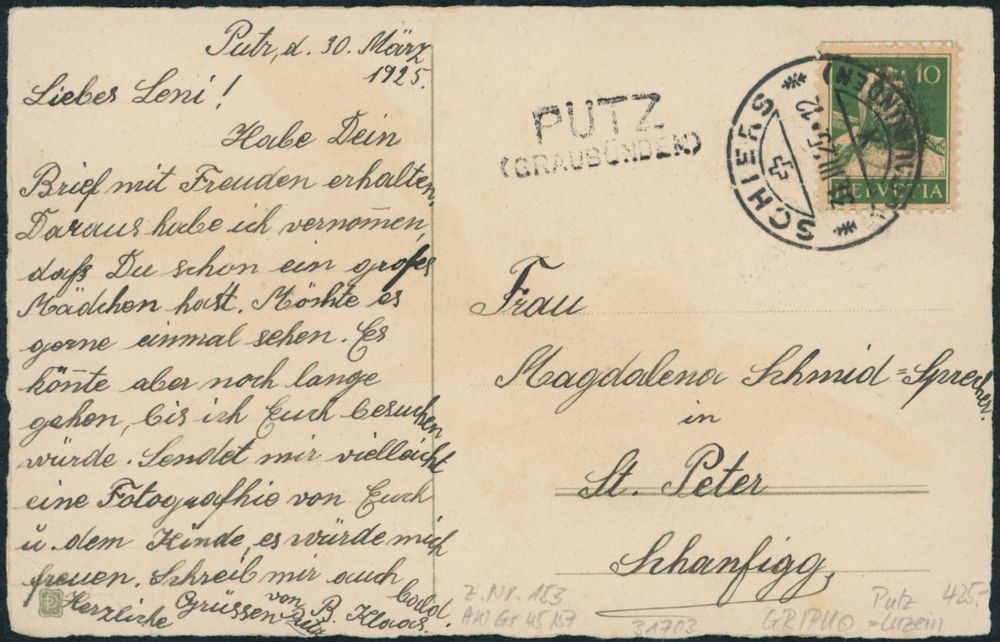 Putz, d. 30. März
1925.
Liebes Leni!
Habe Dein
Brief mit Freuden erhalten.
Daraus habe ich vernom̅en,
daß Du schon ein großes
Mädchen hast. Möchte es
gerne einmal sehen. Es
kön̅te aber noch lange
gehen, bis ich Euch besuchen
würde. Sendet mir vielleicht
eine Fotografhie von Euch
u. dem Kinde, es würde mich
freuen. Schreib mir auch
bald.
Herzliche Grüssen von B. Klaas.
Putz
PUTZ
(GRAUBÜNDEN)
SCHIERS
10
HELVETIA
Frau
Magdalena Schmid=Sprecher.
in
St. Peter
Schanfigg,
Z. Nr. 153
AW Gr 45 157
31703
GRIPHO
Putz
=Luzein
425.-